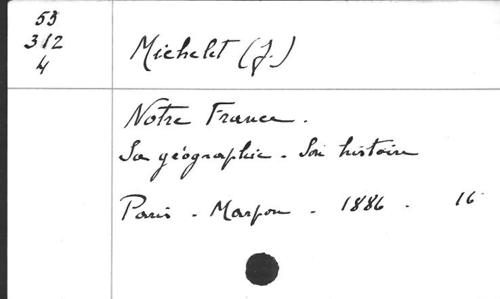 53
312
4
Michelet (J.)
Notre France.
Sa géographie - Son histoire
Paris - Marpon - 1886 - 16